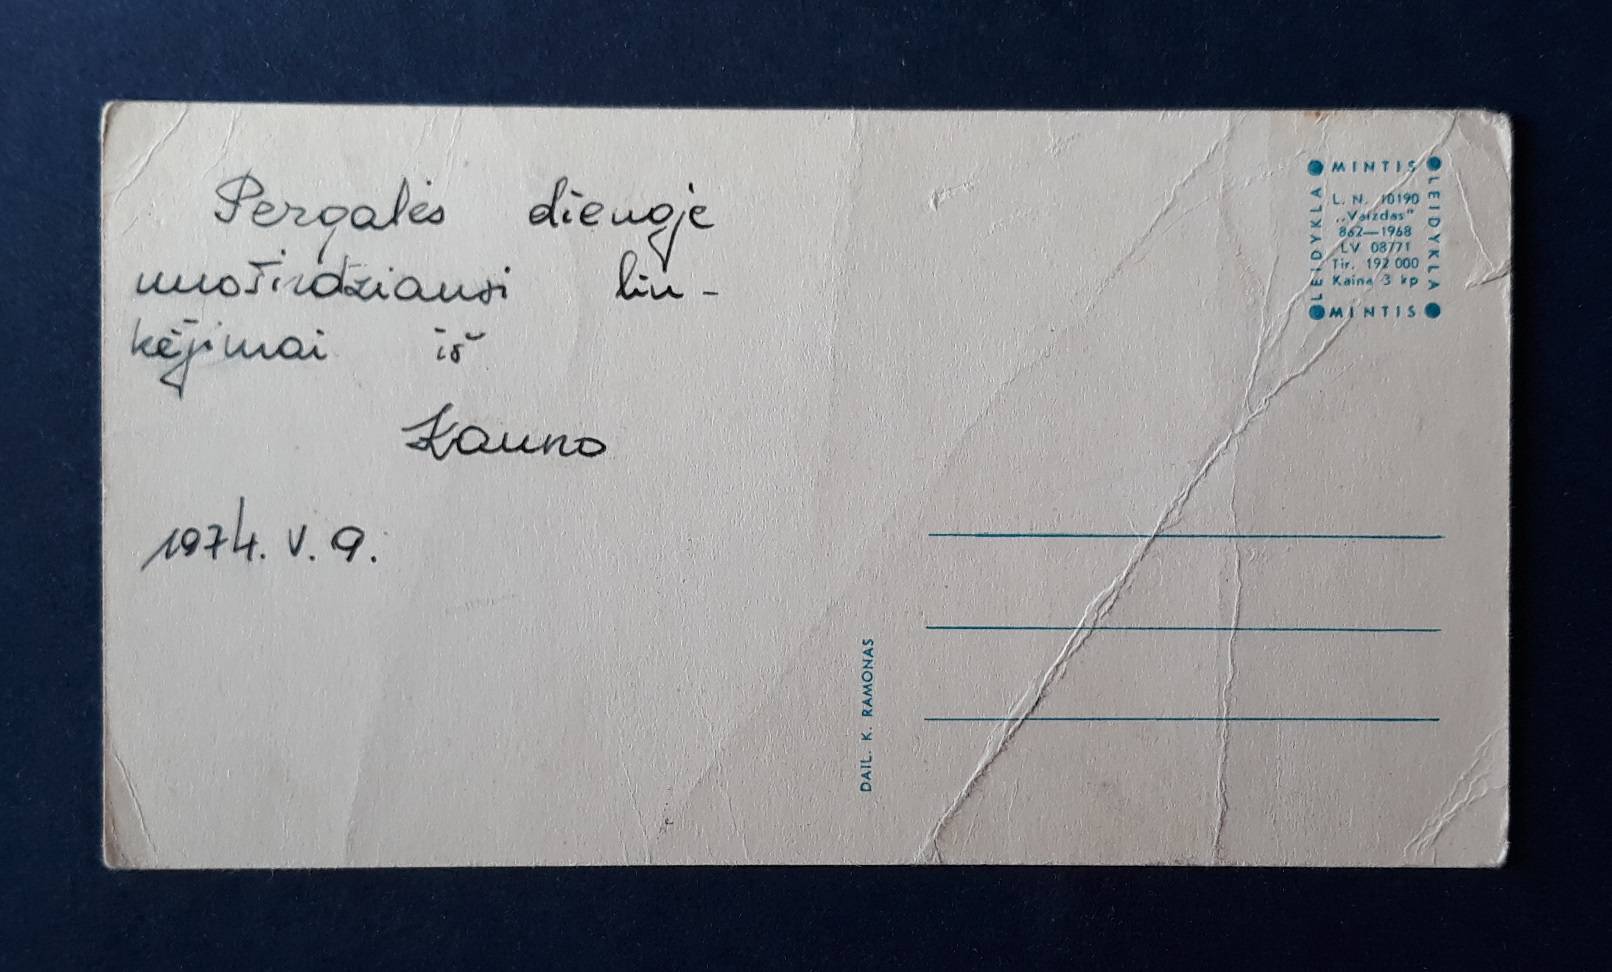 Pergalės dienoje
nuoširdžiausi lin-
kėjimai iš
Kauno
1974. V. 9.
MINTIS
LEIDYKLA
L. N. 10190
„Vaizdas"
862—1968
LV 08771
Tir. 192 000
Kaina 3 kp
LEIDYKLA
MINTIS
DAIL. K. RAMONAS